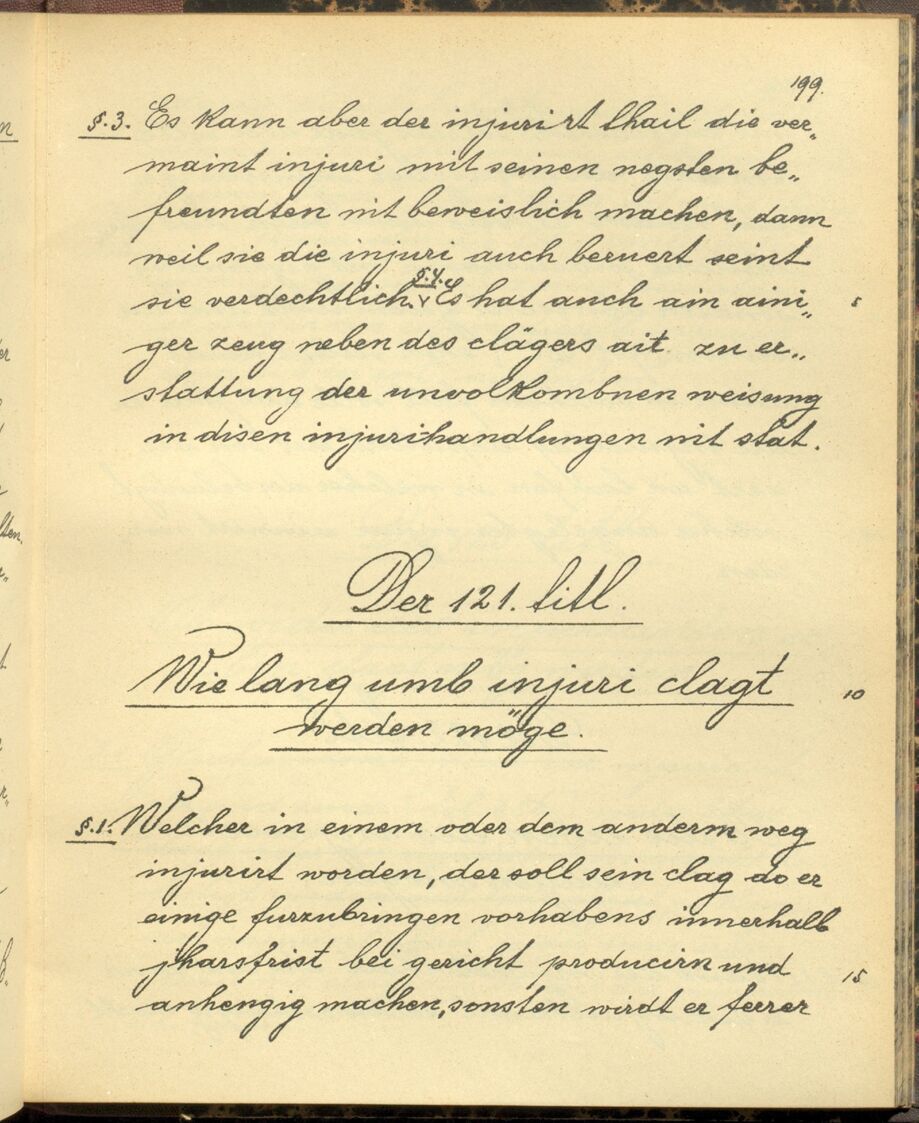 199.
§.3. Es kann aber der injurirt thail die ver„
maint injuri mit seinen negsten be„
freundten nit beweislich machen, dann
weil sie die injuri auch beruert seint
sie verdechtlich. §.4. Es hat auch ain aini„ 5
ger zeug neben des clägers ait zu er„
stattung der unvolkombnen weisung
in disen injurihandlungen nit stat.
Der 121. titl.
Wie lang umb injuri clagt 10
werden möge.
§.1. Welcher in einem oder dem anderm weg
injurirt worden, der soll sein clag do er
einige furzubringen vorhabens innerhalb
jharsfrist bei gericht producirn und 15
anhengig machen, sonsten wirdt er ferrer